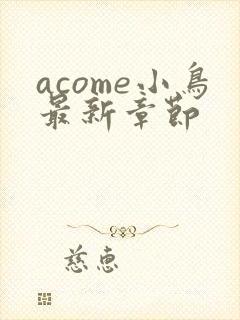 acome小鳥
最新章節
慈惠